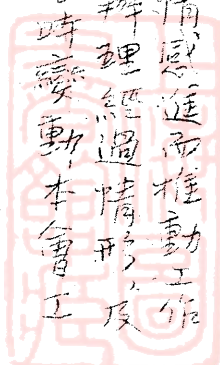 情感進而推動工作
辦理經過情形,及
時變動本會工